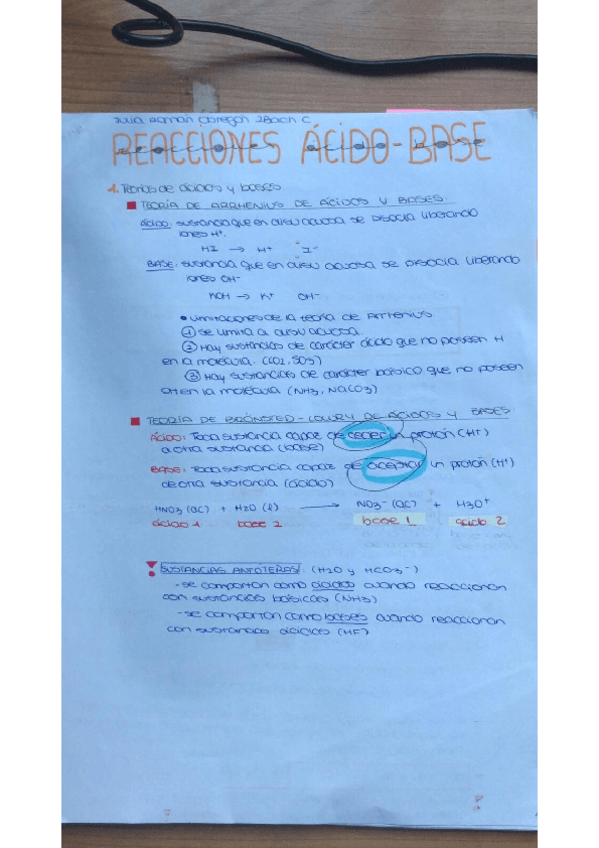 Julia Román Obregón 2Bach C
REACCIONES ÁCIDO-BASE
reacciones ácido base
1. Teorías de ácidos y bases
TEORÍA DE ARRHENIUS DE ÁCIDOS Y BASES
ÁCIDO: sustancia que en disu acuosa se disocia liberando
iones H+.
HI → H+ I-
BASE: sustancia que en disu acuosa se disocia liberando
iones OH-
KOH → K+ OH-
• Limitaciones de la teoría de Arrhenius
① Se limita a disu acuosa.
② Hay sustancias de carácter ácido que no poseen H
en la molécula. (CO2, SO3)
③ Hay sustancias de carácter básico que no poseen
OH en la molécula (NH3, NaCO3)
TEORÍA DE BRÖNSTED-LOWRY DE ÁCIDOS Y BASES
ÁCIDO: Toda sustancia capaz de ceder un protón (H+)
a otra sustancia (base)
BASE: Toda sustancia capaz de aceptar un protón (H+)
de otra sustancia (ácido)
HNO3 (ac) + H2O (l) → NO3- (ac) + H3O+
ácido 1 base 2 base 1 ácido 2
SUSTANCIAS ANFÓTERAS: (H2O y HCO3-)
- se comportan como ácidos cuando reaccionan
con sustancias básicas (NH3)
- se comportan como bases cuando reaccionan
con sustancias ácidas (HF)